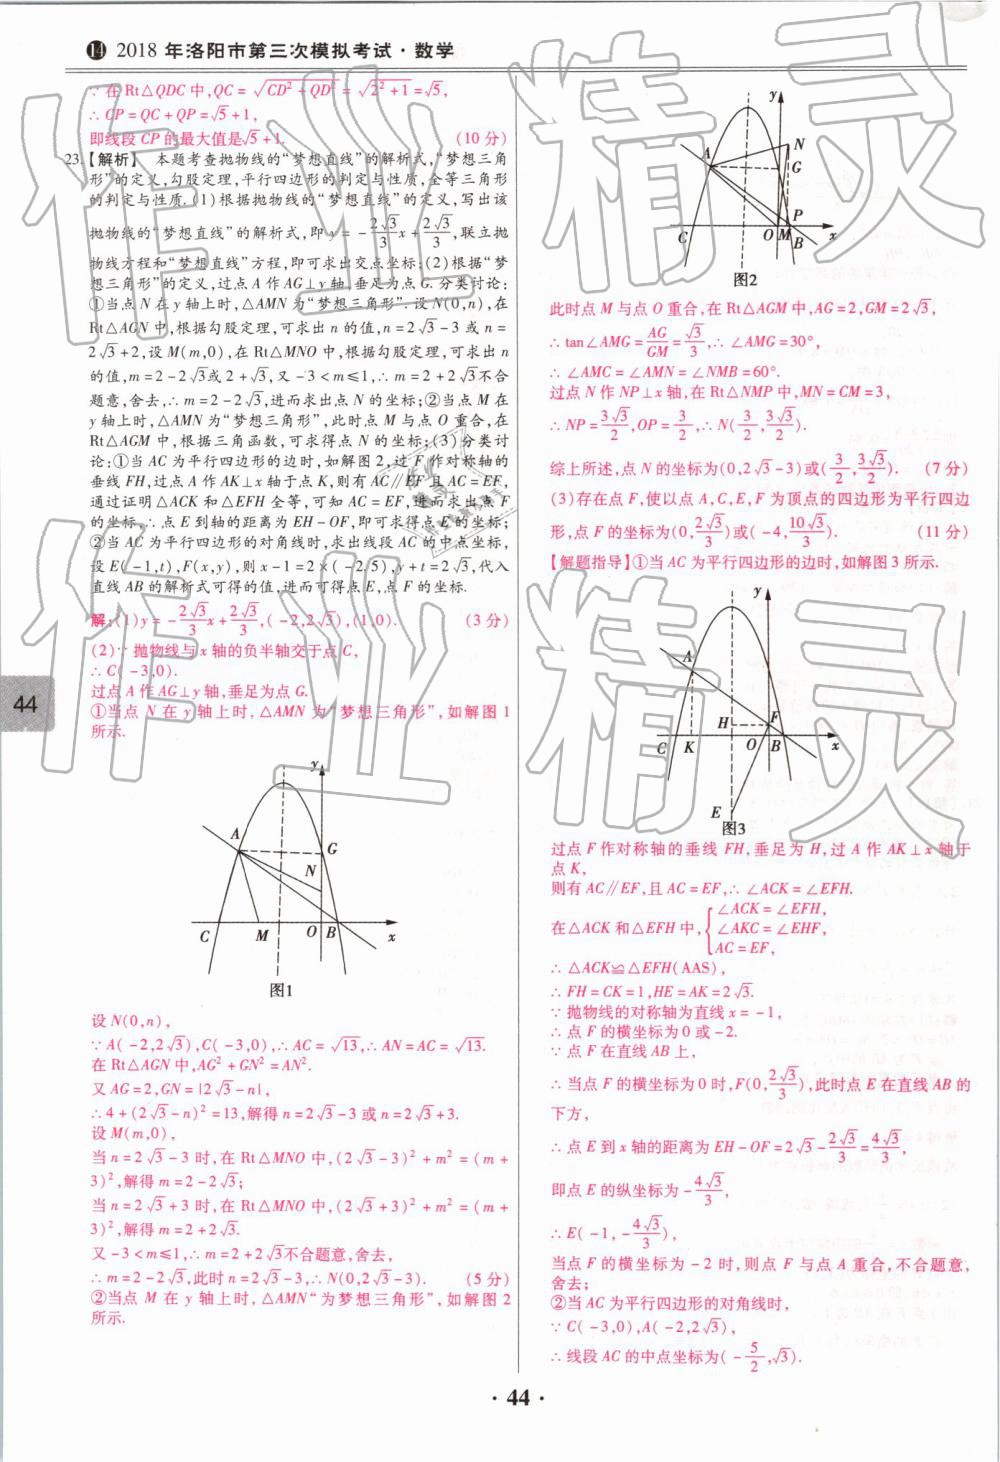 14 2018 年洛阳市第三次模拟考试·数学
∵在 Rt△QDC 中,QC = √(CD²+QD²) = √(2²+1) = √5,
∴CP = QC + QP = √5 + 1,
即线段 CP 的最大值是√5 + 1. (10 分)
23.【解析】 本题考查抛物线的“梦想直线”的解析式,“梦想三角
形”的定义,勾股定理,平行四边形的判定与性质,全等三角形
的判定与性质.(1)根据抛物线的“梦想直线”的定义,写出该
抛物线的“梦想直线”的解析式,即 y = -2√3/3x + 2√3/3,联立抛
物线方程和“梦想直线”方程,即可求出交点坐标;(2)根据“梦
想三角形”的定义,过点 A 作 AG⊥y 轴,垂足为点 G.分类讨论:
①当点 N 在 y 轴上时,△AMN 为“梦想三角形”.设 N(0,n),在
Rt△AGN 中,根据勾股定理,可求出 n 的值,n = 2√3 - 3 或 n =
2√3 + 2,设 M(m,0),在 Rt△MNO 中,根据勾股定理,可求出 n
的值,m = 2 - 2√3或 2 + √3,又 -3 < m ≤ 1,∴m = 2 + 2√3不合
题意,舍去,∴m = 2 - 2√3,进而求出点 N 的坐标;②当点 M 在
y 轴上时,△AMN 为“梦想三角形”,此时点 M 与点 O 重合,在
Rt△AGM 中,根据三角函数,可求得点 N 的坐标;(3)分类讨
论:①当 AC 为平行四边形的边时,如解图 2,过 F 作对称轴的
垂线 FH,过点 A 作 AK⊥x 轴于点 K,则有 AC∥EF 且 AC = EF,
通过证明△ACK 和△EFH 全等,可知 AC = EF,进而求出点 F
的坐标,∴点 E 到轴的距离为 EH - OF,即可求得点 E 的坐标;
②当 AC 为平行四边形的对角线时,求出线段 AC 的中点坐标,
设 E(-1,t),F(x,y),则 x - 1 = 2×(-2.5),y + t = 2√3,代入
直线 AB 的解析式可得的值,进而可得点 E,点 F 的坐标.
解:(1)y = -2√3/3x + 2√3/3,(-2,2√3),(1,0). (3 分)
(2)∵抛物线与 x 轴的负半轴交于点 C,
∴C(-3,0).
过点 A 作 AG⊥y 轴,垂足为点 G.
①当点 N 在 y 轴上时,△AMN 为“梦想三角形”,如解图 1
所示.
y
A
G
N
C
M
O
B
x
图1
设 N(0,n),
∵A(-2,2√3),C(-3,0),∴AC = √13,∴AN = AC = √13.
在 Rt△AGN 中,AG² + GN² = AN².
又 AG = 2,GN = |2√3 - n|,
∴4 + (2√3 - n)² = 13,解得 n = 2√3 - 3 或 n = 2√3 + 3.
设 M(m,0),
当 n = 2√3 - 3 时,在 Rt△MNO 中,(2√3 - 3)² + m² = (m +
3)²,解得 m = 2 - 2√3;
当 n = 2√3 + 3 时,在 Rt△MNO 中,(2√3 + 3)² + m² = (m +
3)²,解得 m = 2 + 2√3.
又 -3 < m ≤ 1,∴m = 2 + 2√3不合题意,舍去,
∴m = 2 - 2√3,此时 n = 2√3 - 3,∴N(0,2√3 - 3). (5 分)
②当点 M 在 y 轴上时,△AMN“为梦想三角形”,如解图 2
所示.
y
A
N
G
P
C
O
M
B
x
图2
此时点 M 与点 O 重合,在 Rt△AGM 中,AG = 2,GM = 2√3,
∴tan∠AMG = AG/GM = √3/3,∴∠AMG = 30°,
∴∠AMC = ∠AMN = ∠NMB = 60°.
过点 N 作 NP⊥x 轴,在 Rt△NMP 中,MN = CM = 3,
∴NP = 3√3/2,OP = 3/2,∴N(3/2,3√3/2).
综上所述,点 N 的坐标为(0,2√3 - 3)或(3/2,3√3/2). (7 分)
(3)存在点 F,使以点 A,C,E,F 为顶点的四边形为平行四边
形,点 F 的坐标为(0,2√3/3)或(-4,10√3/3). (11 分)
【解题指导】①当 AC 为平行四边形的边时,如解图 3 所示.
y
A
H
F
C
K
O
B
x
E
图3
过点 F 作对称轴的垂线 FH,垂足为 H,过 A 作 AK⊥x 轴于
点 K,
则有 AC∥EF,且 AC = EF,∴∠ACK = ∠EFH.
在△ACK 和△EFH 中,{∠ACK = ∠EFH,
∠AKC = ∠EHF,
AC = EF,
∴△ACK≌△EFH(AAS),
∴FH = CK = 1,HE = AK = 2√3.
∵抛物线的对称轴为直线 x = -1,
∴点 F 的横坐标为 0 或 -2.
∵点 F 在直线 AB 上,
∴当点 F 的横坐标为 0 时,F(0,2√3/3),此时点 E 在直线 AB 的
下方,
∴点 E 到 x 轴的距离为 EH - OF = 2√3 - 2√3/3 = 4√3/3,
即点 E 的纵坐标为 -4√3/3,
∴E(-1,-4√3/3),
当点 F 的横坐标为 -2 时,则点 F 与点 A 重合,不合题意,
舍去;
②当 AC 为平行四边形的对角线时,
∵C(-3,0),A(-2,2√3),
∴线段 AC 的中点坐标为(-5/2,√3).
44
· 44 ·
作业精灵
作业精灵